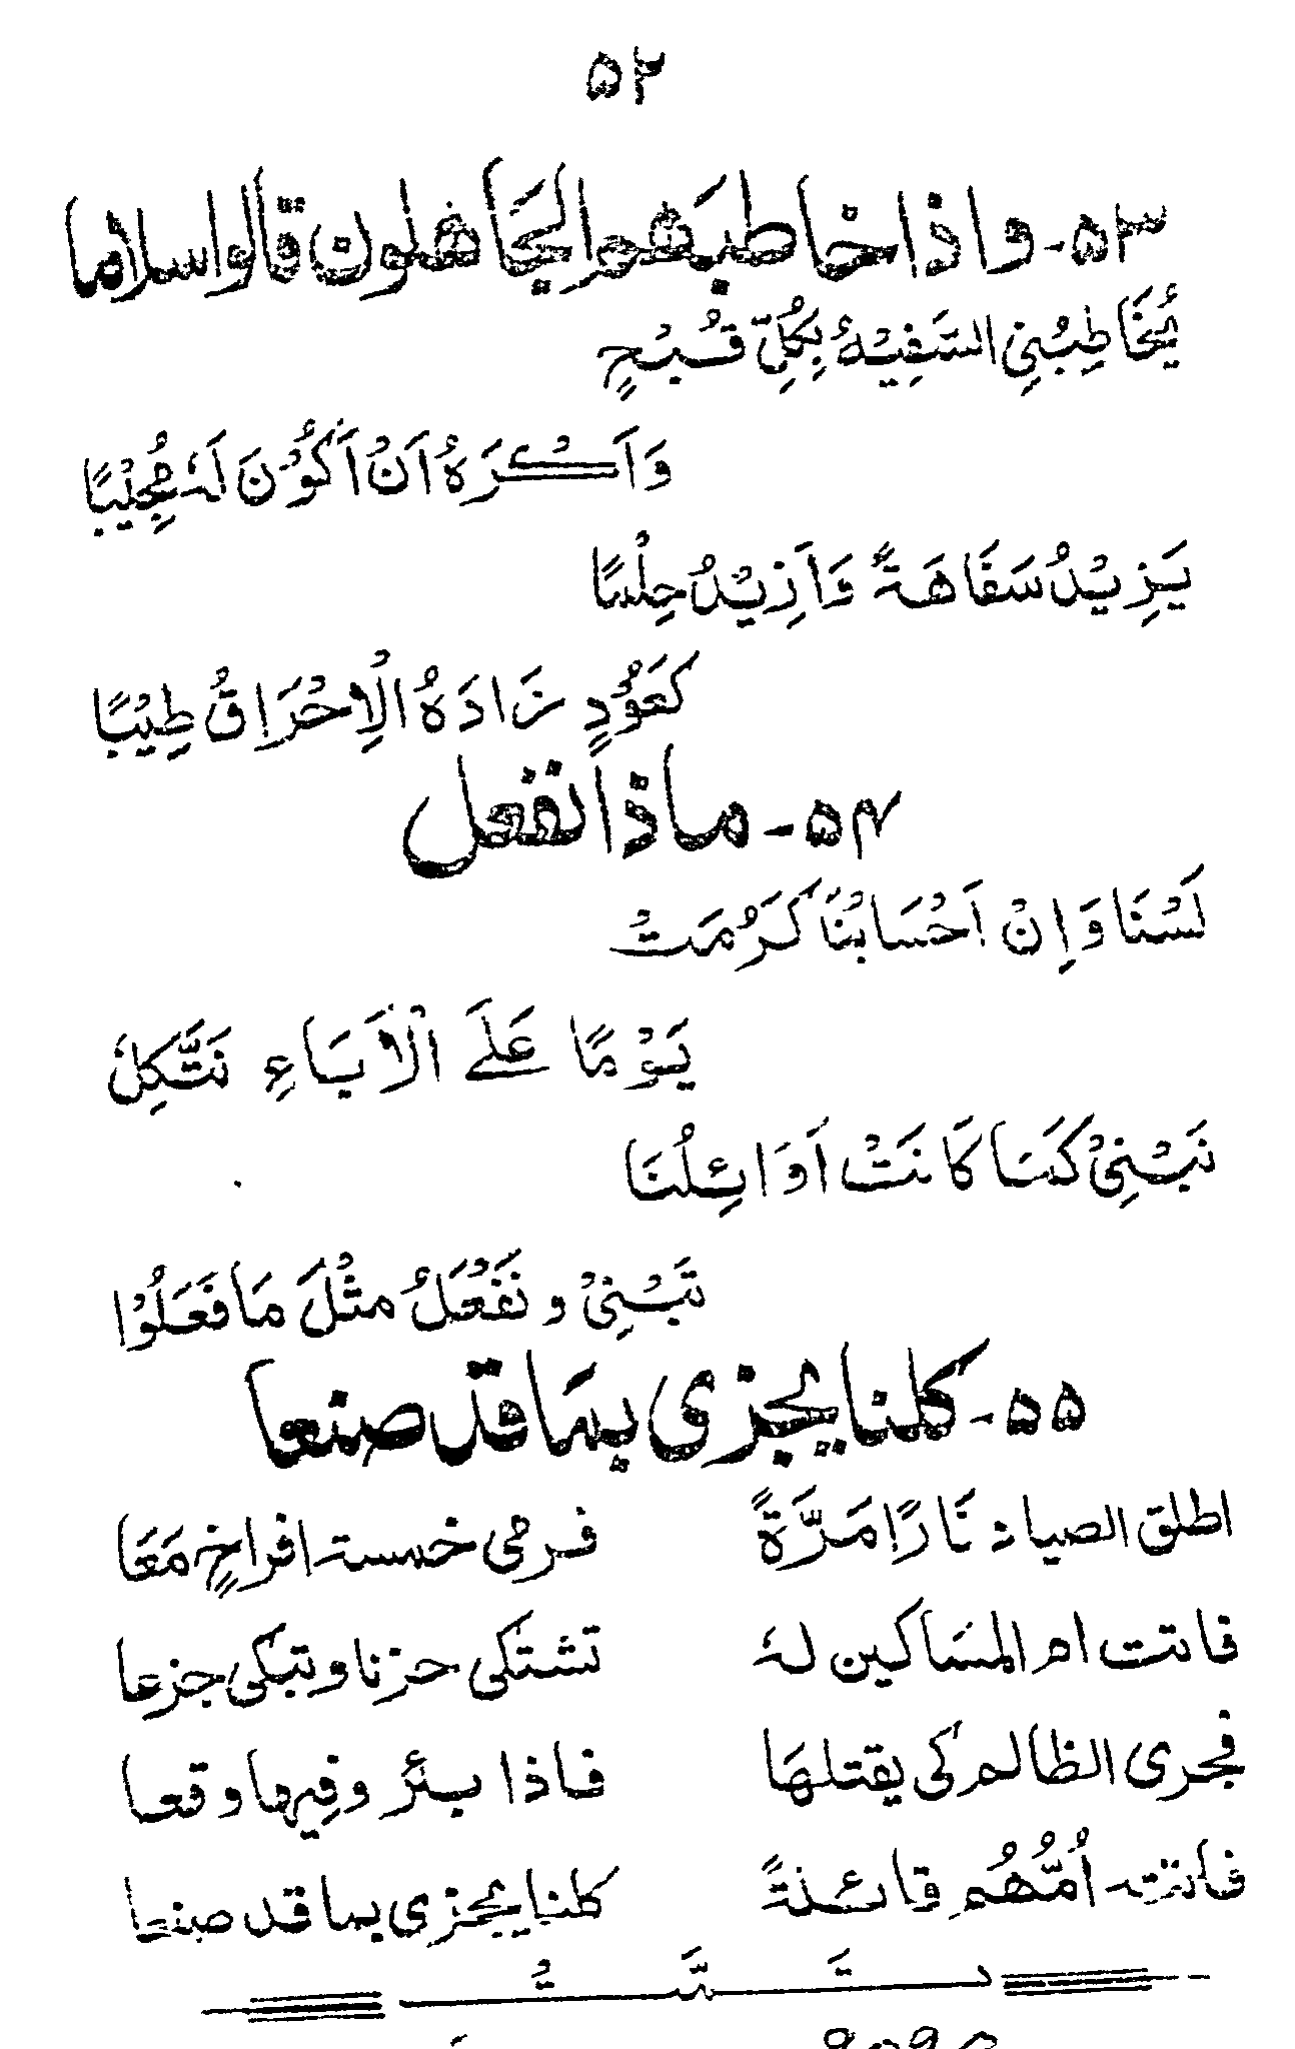 ۵۲
۵۳- واذا خاطبهم الجاهلون قالوا سلاما
يُخَاطِبُنِي السَّفِيْهُ بِكُلِّ قُبْحٍ
وَاَكْرَهُ اَنْ اَكُوْنَ لَهٗ مُجِيْبًا
يَزِيْدُ سَفَاهَةً وَاَزِيْدُ حِلْمًا
كَعُوْدٍ زَادَهُ الْاِحْرَاقُ طِيْبًا
۵۴- ماذا نفعل
لَسْنَا وَاِنْ اَحْسَابُنَا كَرُمَتْ
يَوْمًا عَلَے الْاَبَاءِ نَتَّكِلُ
نَبْنِيْ كَمَا كَانَتْ اَوَائِلُنَا
تَبْنِيْ و نَفْعَلُ مثْلَ مَا فَعَلُوْا
۵۵- كلنا يجزى بما قد صنعا
اطلق الصياد نَارًا مَرَّةً فرمى خمسة افراخٍ مَعَا
فاتت ام المساكين لهٗ تشتكى حزنا وتبكى جزعا
فجرى الظالم كى يقتلها فاذا بئر وفيها وقعا
اُمُّهُم كلنا يجزى بما قد صنعا
تَمَّتْ